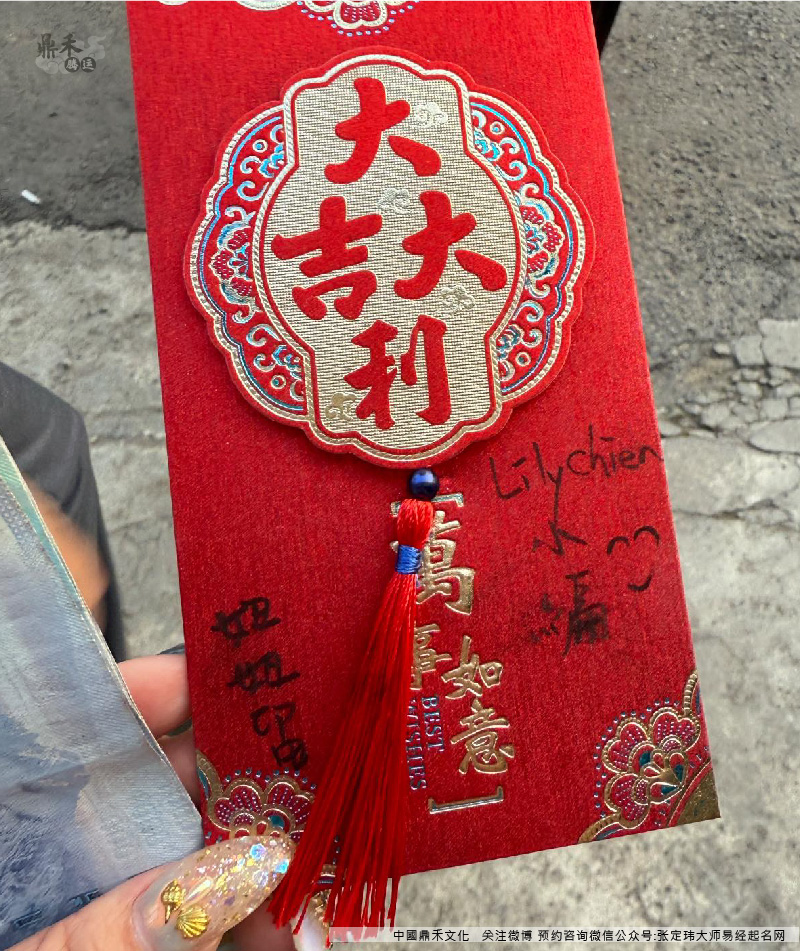 鼎禾
腾运
大
吉大
利
Lily chien
小
编
萬事
如意
BEST
WISHES
妞
妞
留
中國鼎禾文化 关注微博 预约咨询微信公众号:张定玮大师易经起名网